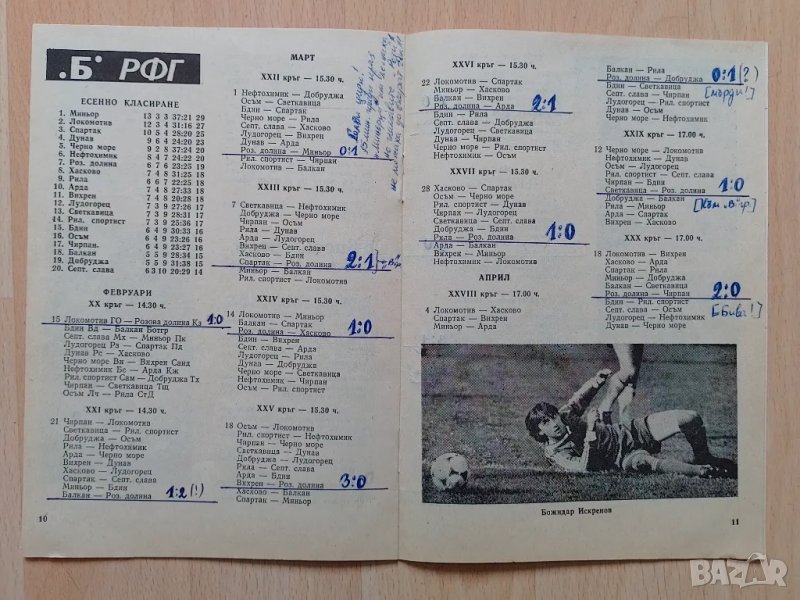 „Б“ РФГ
ЕСЕННО КЛАСИРАНЕ
1. Миньор 13 3 3 37:21 29
2. Локомотив 12 3 4 31:16 27
3. Спартак 10 5 4 28:20 25
4. Дунав 9 6 4 24:20 23
5. Черно море 9 3 7 30:23 21
6. Нефтохимик 8 4 7 24:22 20
7. Роз. долина
8. Хасково 7 4 8 31:25 18
9. Рила 6 6 7 22:25 18
10. Арда 7 4 8 27:33 18
11. Вихрен 7 4 8 27:30 18
12. Лудогорец
13. Светкавица 7 3 9 28:31 17
14. Рил. спортист 7 3 9 25:36 17
15. Бдин 6 4 9 30:33 16
16. Осъм 6 4 9 23:26 16
17. Чирпан 6 4 9 23:27 16
18. Балкан 5 5 9 28:34 15
19. Добруджа 5 5 9 31:38 15
20. Септ. слава 6 3 10 20:29 14
ФЕВРУАРИ
XX кръг — 14.30 ч.
15 Локомотив ГО — Розова долина Кз 1:0
Бдин Вд — Балкан Ботгр
Септ. слава Мх — Миньор Пк
Лудогорец Рз — Спартак Пд
Дунав Рс — Хасково
Черно море Вн — Вихрен Санд
Нефтохимик Бс — Арда Кж
Рил. спортист Сам — Добруджа Тх
Чирпан — Светкавица Тщ
Осъм Лч — Рила СтД
XXI кръг — 14.30 ч.
21 Чирпан — Локомотив
Осъм — Рил. спортист
Добруджа — Осъм
Рила — Нефтохимик
Арда — Черно море
Вихрен — Дунав
Хасково — Лудогорец
Спартак — Септ. слава
Миньор — Бдин
Балкан — Роз. долина 1:2 (!)
10
МАРТ
XXII кръг — 15.30 ч.
1 Нефтохимик — Добруджа
Осъм — Светкавица
Бдин — Спартак
Черно море — Рила
Септ. слава — Хасково
Лудогорец — Вихрен
Дунав — Арда
Роз. долина — Миньор 0:1
Рил. спортист — Чирпан
Локомотив — Балкан
XXIII кръг — 15.30 ч.
7 Светкавица — Нефтохимик
Добруджа — Черно море
Чирпан — Осъм
Рила — Дунав
Арда — Лудогорец
Вихрен — Септ. слава
Хасково — Бдин
Спартак — Роз. долина 2:1
Миньор — Балкан
Рил. спортист — Локомотив
XXIV кръг — 15.30 ч.
14 Локомотив — Миньор
Балкан — Спартак
Роз. долина — Хасково 1:0
Бдин — Вихрен
Септ. слава — Арда
Лудогорец — Рила
Дунав — Добруджа
Черно море — Светкавица
Нефтохимик — Чирпан
Осъм — Рил. спортист
XXV кръг — 15.30 ч.
18 Осъм — Локомотив
Рил. спортист — Нефтохимик
Чирпан — Черно море
Светкавица — Дунав
Добруджа — Лудогорец
Рила — Септ. слава
Арда — Бдин
Вихрен — Роз. долина 3:0
Хасково — Балкан
Спартак — Миньор
XXVI кръг — 15.30 ч.
22 Локомотив — Спартак
Миньор — Хасково
Балкан — Вихрен
Роз. долина — Арда 2:1
Бдин — Рила
Септ. слава — Добруджа
Лудогорец — Светкавица
Дунав — Чирпан
Черно море — Рил. спортист
Нефтохимик — Осъм
XXVII кръг — 15.30 ч.
28 Хасково — Спартак
Нефтохимик — Локомотив
Осъм — Черно море
Рил. спортист — Дунав
Чирпан — Лудогорец
Светкавица — Септ. слава
Добруджа — Бдин
Рила — Роз. долина 1:0
Арда — Балкан
Вихрен — Миньор
АПРИЛ
XXVIII кръг — 17.00 ч.
4 Локомотив — Хасково
Спартак — Вихрен
Миньор — Арда
Балкан — Рила
Роз. долина — Добруджа 0:1 (?)
Бдин — Светкавица
Септ. слава — Чирпан
Лудогорец — Рил. спортист
Дунав — Осъм
Черно море — Нефтохимик
XXIX кръг — 17.00 ч.
12 Черно море — Локомотив
Нефтохимик — Дунав
Осъм — Лудогорец
Рил. спортист — Септ. слава
Чирпан — Бдин
Светкавица — Роз. долина 1:0
Добруджа — Балкан
Рила — Миньор
Арда — Спартак
Вихрен — Хасково
XXX кръг — 17.00 ч.
18 Локомотив — Вихрен
Хасково — Арда
Спартак — Рила
Миньор — Добруджа
Балкан — Светкавица
Роз. долина — Чирпан 2:0
Бдин — Рил. спортист
Септ. слава — Осъм
Лудогорец — Нефтохимик
Дунав — Черно море
Божидар Искренов
11
BAZAR